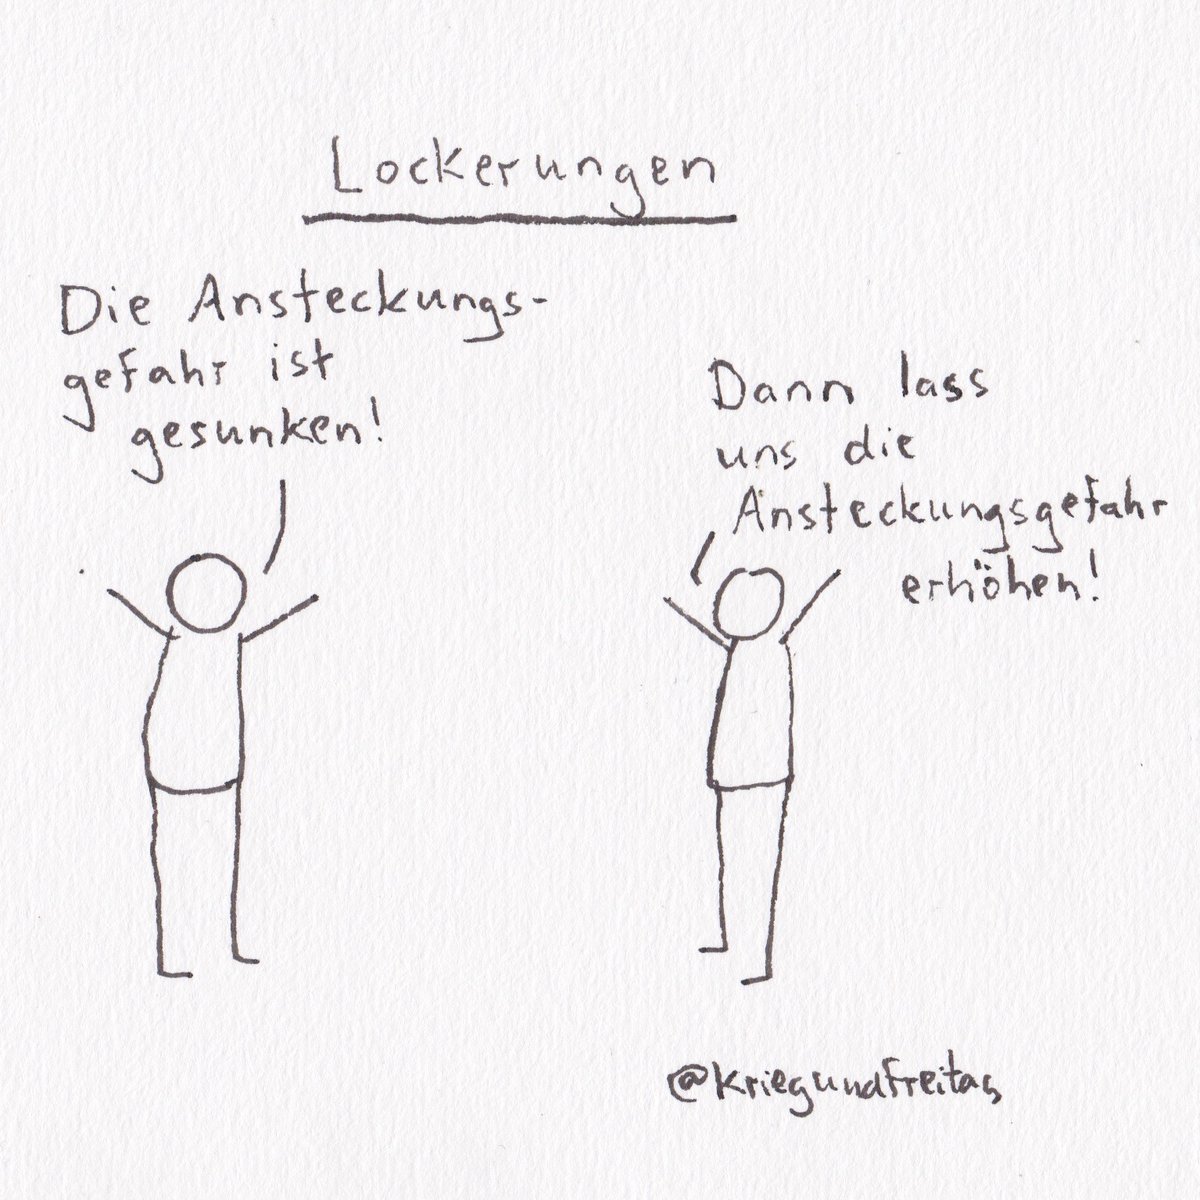 Lockerungen
Die Ansteckungs-
gefahr ist
gesunken!
Dann lass
uns die
Ansteckungsgefahr
erhöhen!
@kriegundfreitag